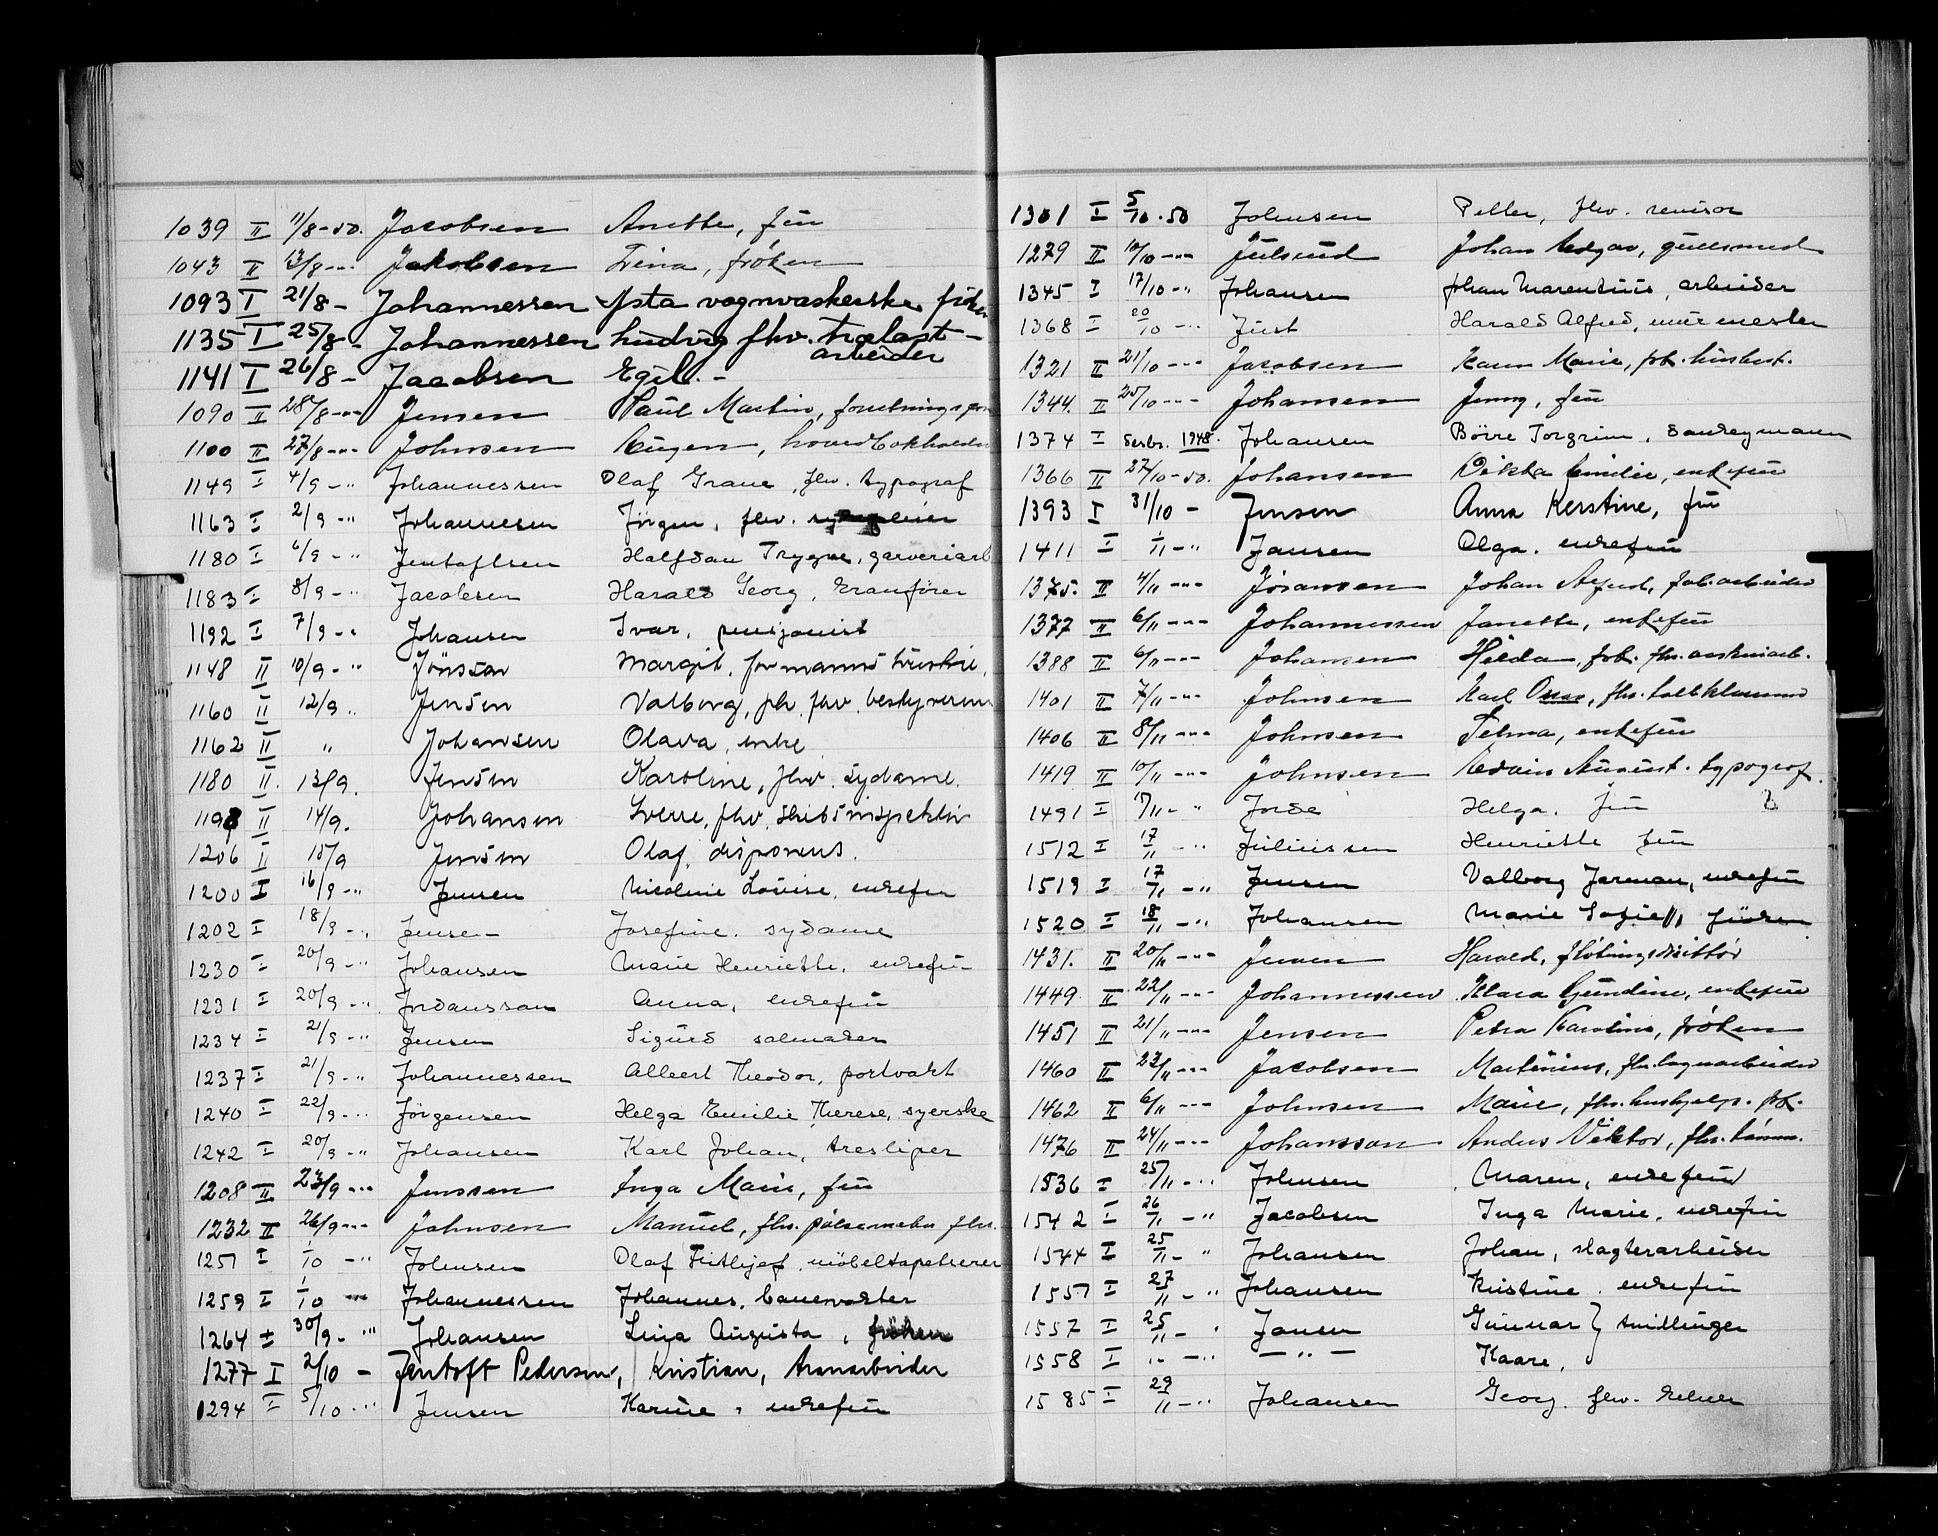 1039 II 11/8-50. Jacobsen Anette, fru
1043 II 13/8-"- Jakobsen Trina, frøken
1093 I 21/8 - Johannessen Asta vognvaskerske
1135 I 25/8 - Johannessen Ludvig fhv. trælast-
arbeider
1141 I 26/8 - Jacobsen Egil. -
1090 II 28/8-"- Jensen Paul Martin,
1100 II 27/8-"- Johnsen Eugen,
1149 I 4/9 -" Johannessen Olaf Grane, fhv. typograf
1163 I 2/9 -" Johannesen Jörgen, fhv.
1180 I 6/9 -" Jentoftsen Halfdan Trygve, garveriarb
1183 I 8/9 -" Jacobsen Harald Georg, kranfører
1192 I 7/9 -" Johansen Ivar, pensjonist
1148 II 10/9 -" Jönsson Margit, formanns hustru,
1160 II 12/9 " Jensen Valborg, fhv. bestyrerinne
1162 II " Johansen Olava, enke
1180 II. 13/9. Jensen Karoline, fhv. sydame.
1198 II 14/9. Johansen Sverre, fhv. skibsinspektör
1206 II 15/9 Jensen Olaf, disponent.
1200 I 16/9 -" Jensen Nicoline Louise, enkefru
1202 I 18/9 -" Jensen Josefine. sydame
1230 I 20/9 -" Johansen Marie Henriette, enkefru
1231 I 20/9 -" Jordansson Anna, enkefru
1234 I 21/9 -" Jensen Sigurd salmaker
1237 I 21/9 -" Johannessen Albert Theodor, portvakt
1240 I 22/9 -" Jörgensen Helga Emilie Therese, syerske
1242 I 20/9 -" Johansen Karl Johan, tresliper
1208 II 23/9 -"- Jenssen Inga Marie, fru
1232 II 26/9 -"- Johnsen Manuel, fhv. pølsemaker
1251 I 1/10 -" Johnsen Olaf Frithjof, møbeltapetserer
1259 I 1/10 -"- Johannessen Johannes, banevokter
1264 I 30/9 -" Johansen Lina Augusta, frøken
1277 I 2/10 - Jentoft Pedersen, Kristian, tranarbeider
1294 I 5/10 -" Jensen Karine, enkefru
1301 I 5/10.50 Johnsen Petter, fhv. revisor
1279 II 10/10 -"- Julsrud Johan Edgar, gullsmed
1345 I 17/10 -" Johansen Johan Marentius, arbeider
1368 I 20/10 -" Just Harald Alfred, murmester
1321 II 21/10 -"- Jacobsen Karen Marie,
1344. II 25/10 -"- Johansen Jenny, fru
1374 I Septbr. 1948. Johansen Börre Torgrim,
1366 II 27/10-50. Johansen Emilie, enkefru
1393 I 31/10 - Jensen Anna Kerstine, fru
1411 I 1/11 -" Jansen Olga. enkefru
1375. II 4/11 -"- Jöransen Johan Alfred, fab.arbeider
1377 II 6/11 -"- Johannessen Janette, enkefru
1388 II 6/11 -"- Johansen Hilda, frk.
1401 II 7/11 -"- Johnsen Karl
1406 II 8/11 -"- Johnsen Selma, enkefru
1419 II 10/11 -"- Johnsen Edvin August. typograf.
1491 I 17/11 - " Jorde Helga. fru
1512 I 17/11 -" Juliussen Henriette fru
1519 I 17/11 -" Jensen Valborg Jorman, enkefru
1520 I 18/11 -" Johansen Marie Sofie, frøken
1431. II 20/11 -"- Jensen Harald, fløtningsdirektør
1449 II 22/11 -"- Johannessen Klara Gundine, enkefru
1451 II 21/11 -"- Jensen Petra Karoline, frøken
1460 II 23/11 -"- Jacobsen Martinius, fhv. lagerarbeider
1462 II 6/11 -"- Johnsen Marie, fhv. hushjelp. frk.
1476 II 24/11 -"- Johansson Anders Viktor, fhv. tömm.
1536 I 25/11 -" Johnsen Maren, enkefru
1542 I 26/11 -" Jacobsen Inga Marie, enkefru
1544 I 25/11 - " Johansen Johan, slagterarbeider
1557 I 27/11 - " Johansen Kristine. enkefru
1557 I 25/11 - " Jansen Gunnar } tvillinger
1558 I " -" - " - Kaare,
1585 I 29/11 -" Johansen Georg. fhv. kelner